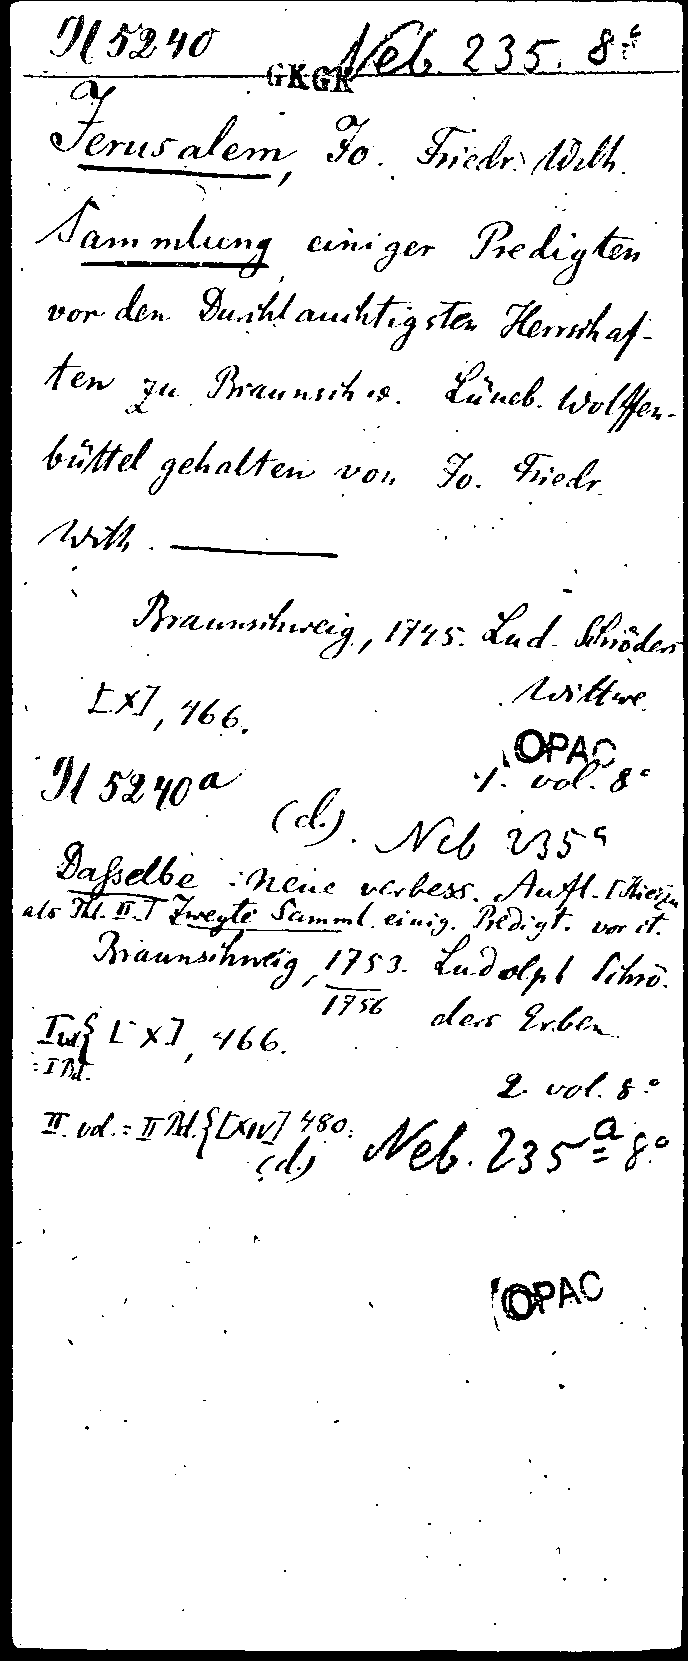 N 5240 Neb. 235. 8°
GKGK
Jerusalem, Jo. Friedr. Wilh.
Sammlung einiger Predigten
vor den Durchlauchtigsten Herrschaf-
ten zu Braunschw. Lüneb. Wolffen-
büttel gehalten von Jo. Friedr.
Wilh. ———
Braunschweig, 1745. Lud. Schröders
Wittwe.
[X], 466.
OPAC
1. vol. 8°
N 5240a
(d.). Neb 235a
Dasselbe : neue verbess. Aufl. [Hierzu
als Thl. II.] Zweyte Samml. einig. Predigt. vor
Braunschweig, 1753. Ludolph Schrö-
1756 ders Erben
[X], 466.
= I Bd.
2 vol. 8°
II. vol. = II Bd. {[XIV] 480.
(d.) Neb. 235a 8°
OPAC